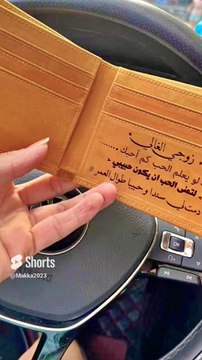 زوجي الغالي
لو يعلم الحب كم أحبك ......
لتمنى الحب ان يكون حبيبي
دمت لي سندا و حبيبا طوال العمر
Shorts
@Makka2023
OK